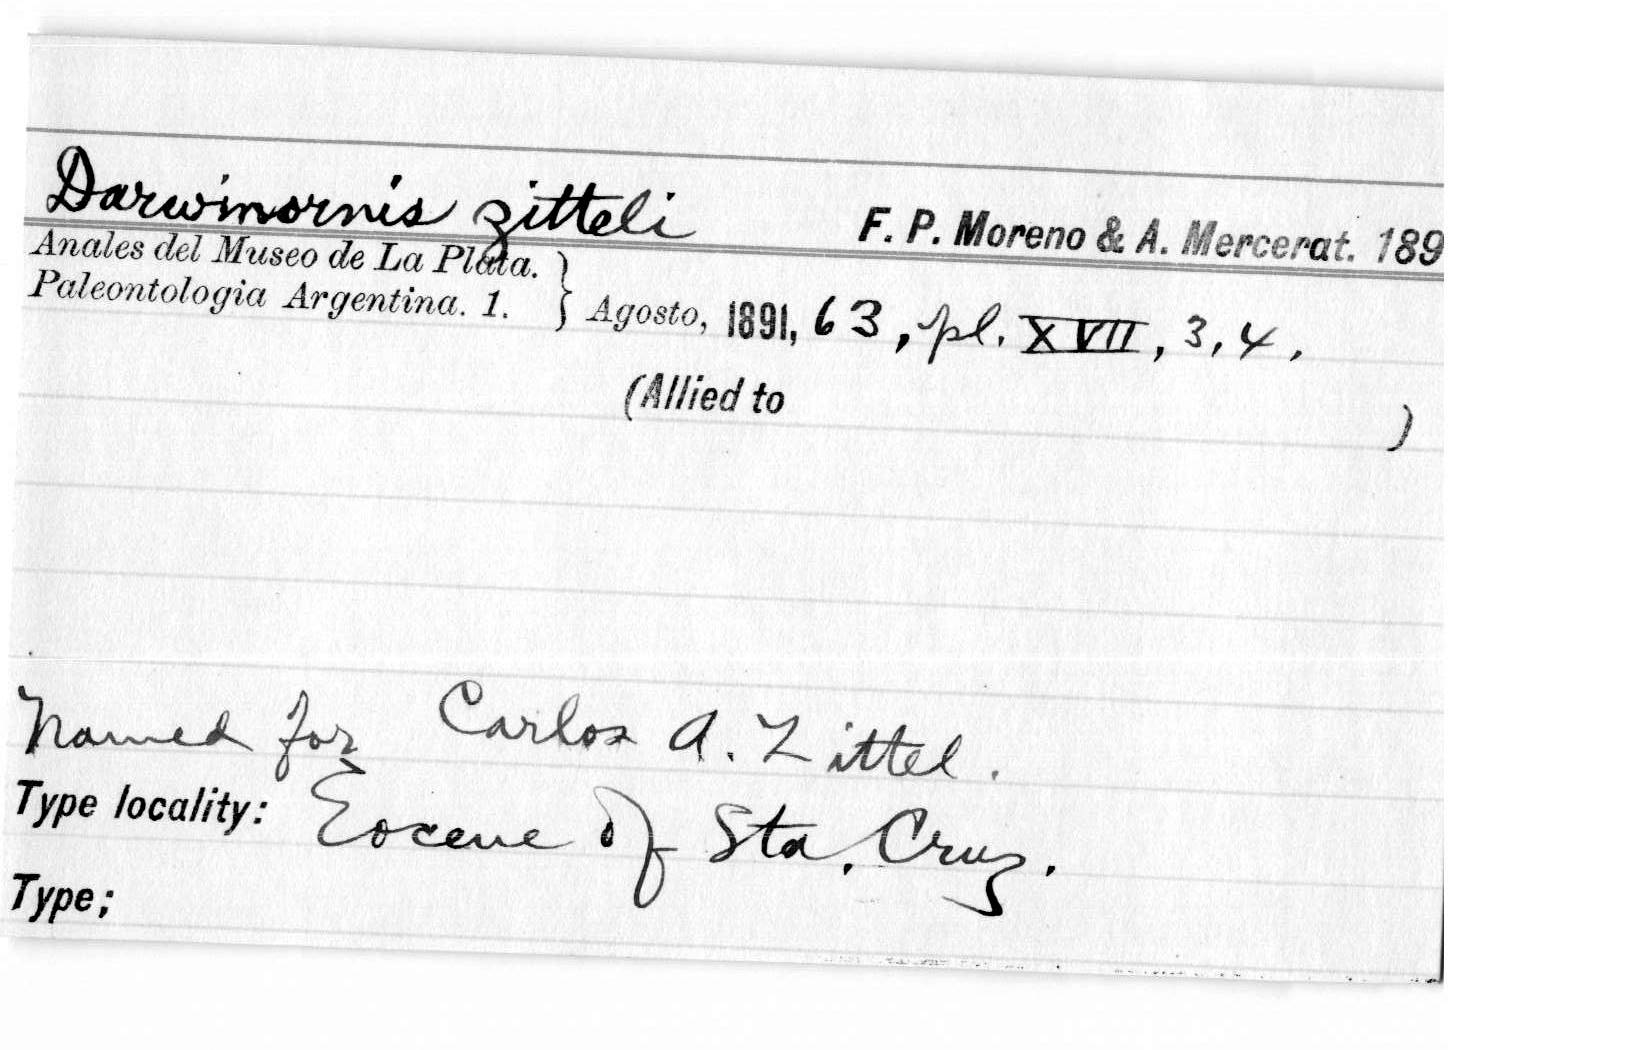 Darwinornis zitteli F. P. Moreno & A. Mercerat. 189
Anales del Museo de La Plata.
Paleontologia Argentina. 1. } Agosto, 1891, 63, pl. XVII, 3, 4.
(Allied to )
Named for Carlos A. Zittel.
Type locality: Eocene of Sta. Cruz.
Type;